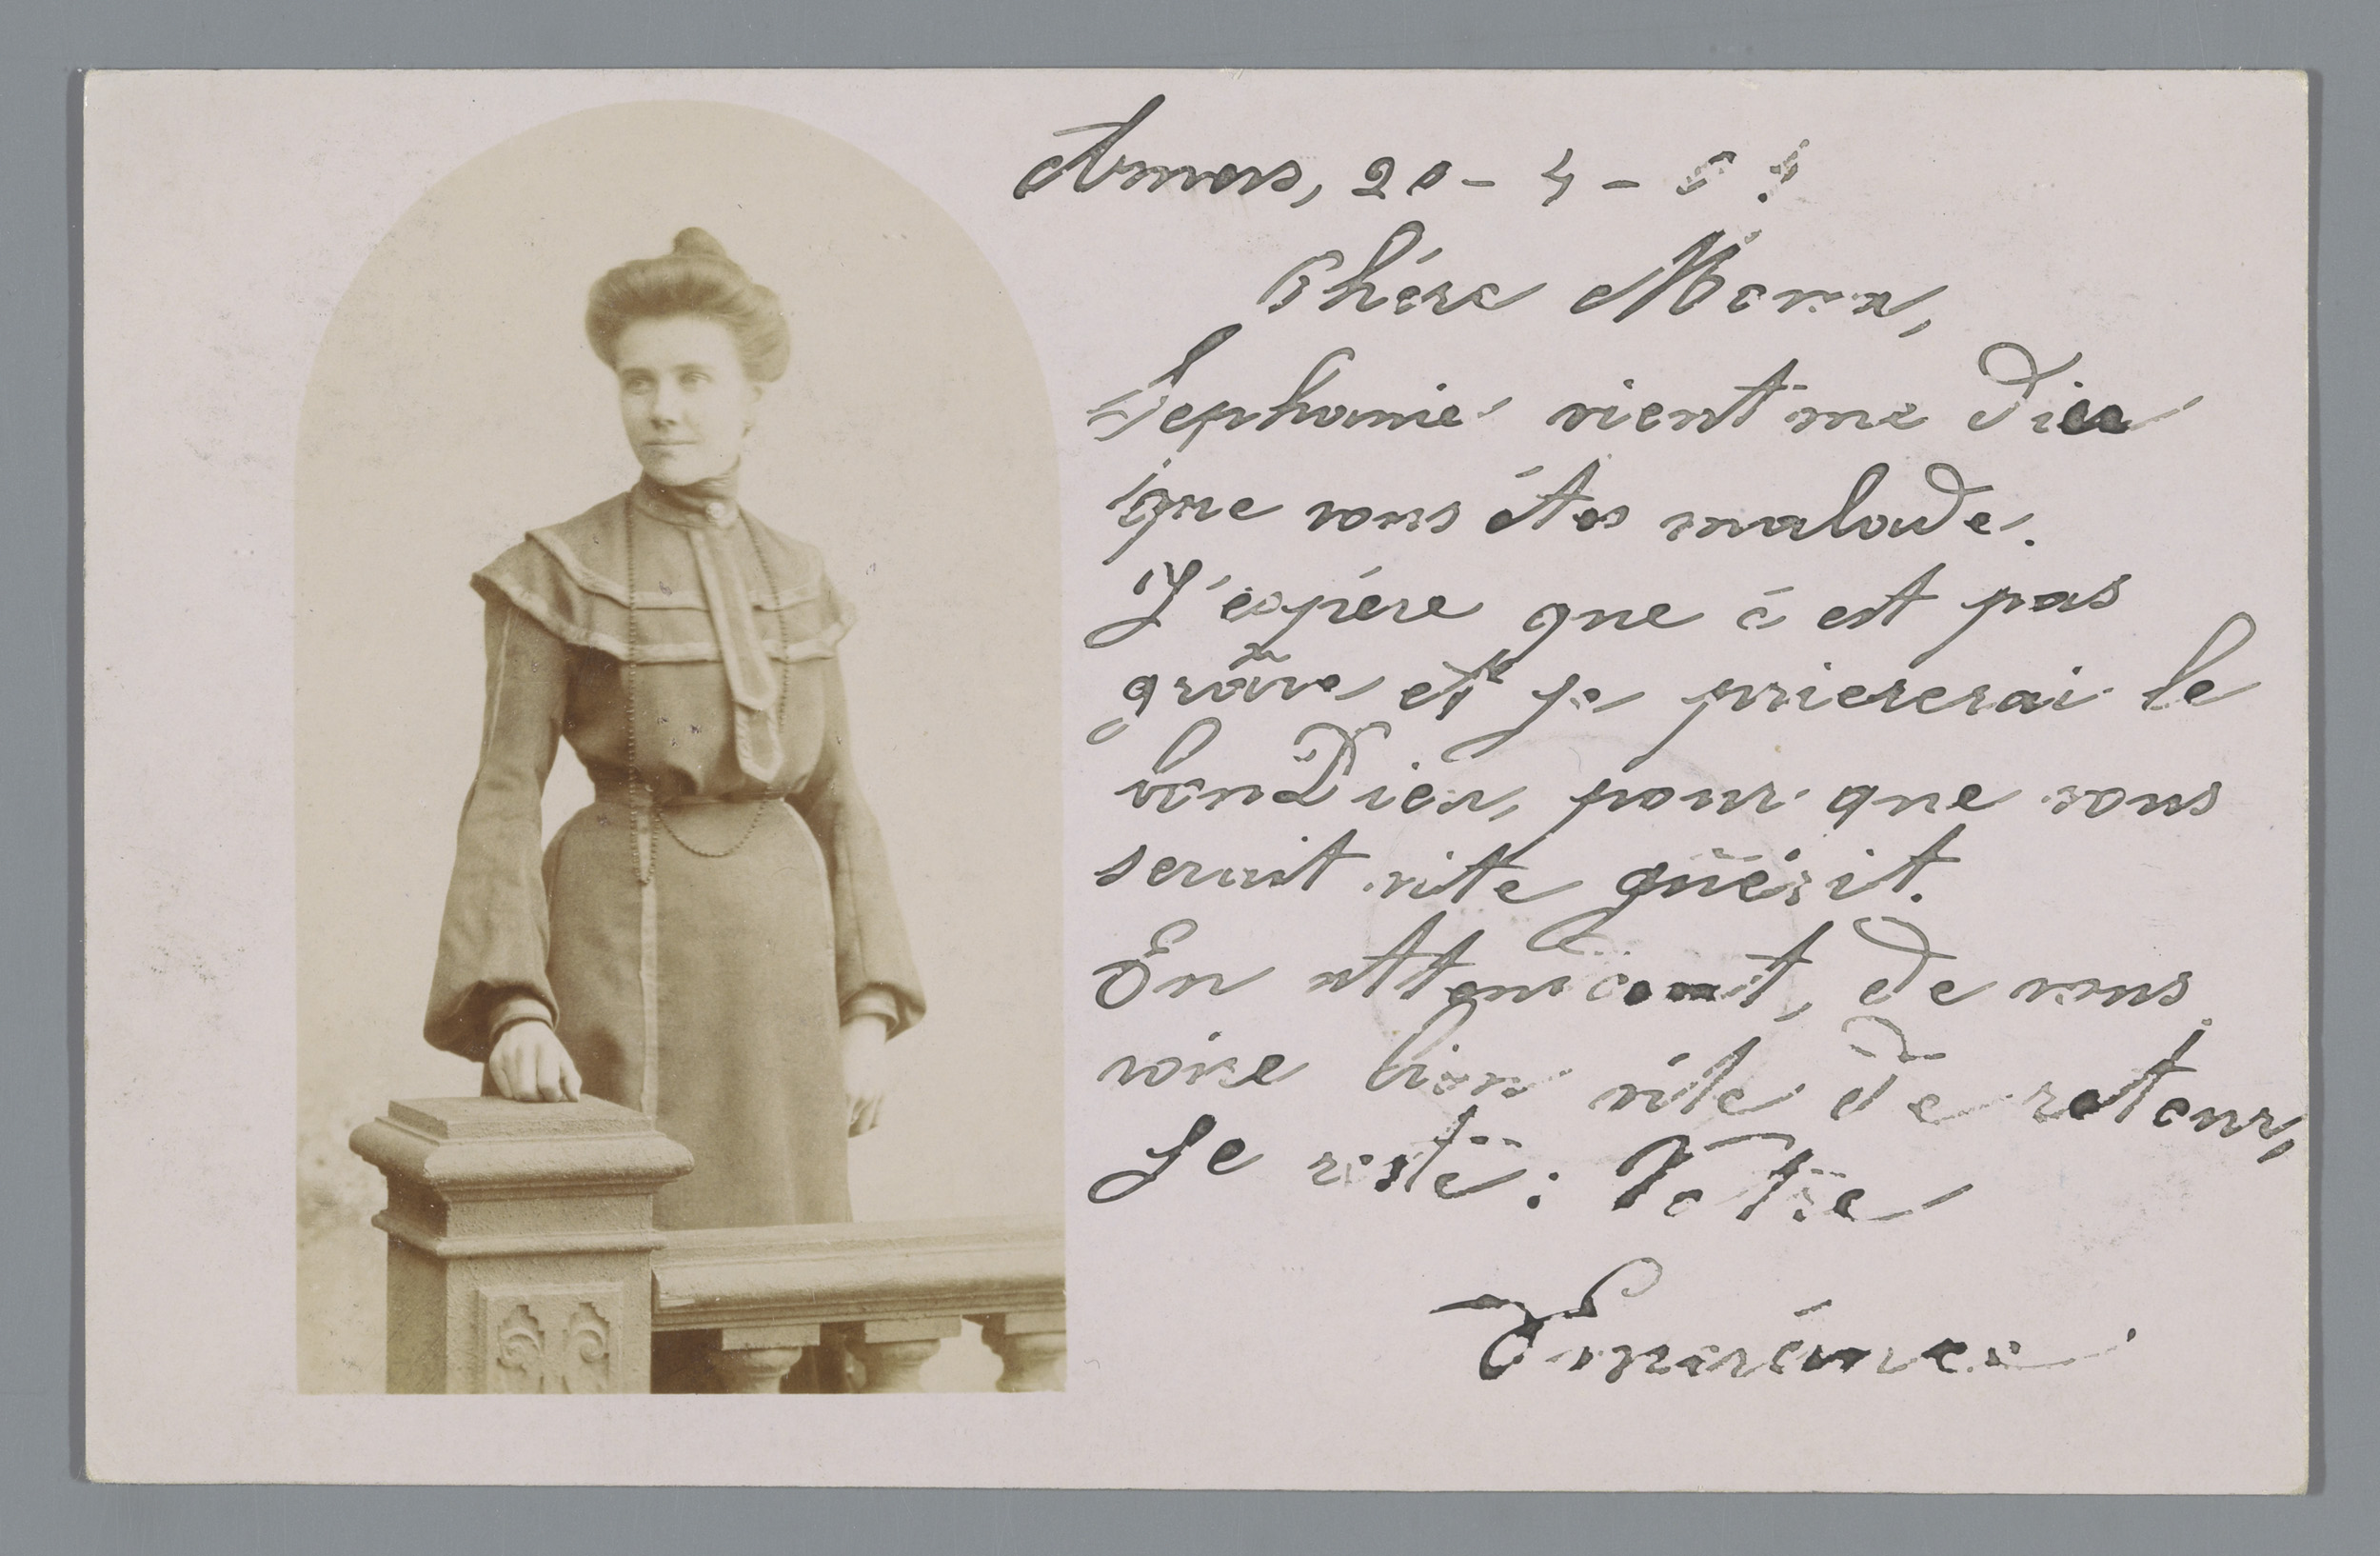 20 - 4 -
Chère
Sephanie vient me dire
que vous êtes malade.
J'espère que c'est pas
grave et je priererai le
bon Dieu, pour que vous
serait vite guérit.
En attendant, de vous
voire bien vite de retour,
Je reste : Votre